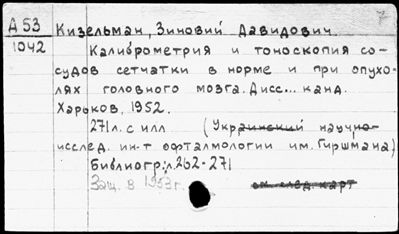 7
А 53 Кизельман, Зиновий Давидович.
1042 Калиброметрия и тоноскопия со-
судов сетчатки в норме и при опухо-
лях головного мозга. Дисс... канд.
Харьков, 1952.
271 л. с илл (Украинский научно-
исслед. ин-т офтальмологии им. Гиршмана)
Библиогр: л. 262-271
Защ. в 1953 г. см. след. карт